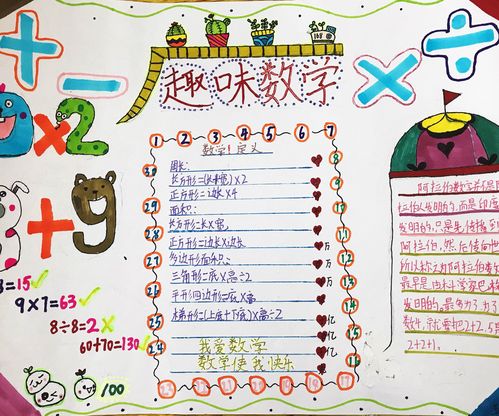 + − × ÷
趣味数学
1 2 3 4 5 6 7
数学!定义
周长:
长方形=(长+宽)×2
正方形=边长×4
面积:
长方形=长×宽,
正方形=边长×边长
多边形面积:
三角形=底×高÷2
平形四边形=底×高
梯形=(上底+下底)×高÷2
我爱数学
数学使我快乐
×2
+9
=15✓
9×7=63✓
8÷8=2×
60+70=130✓
100
30
29
28
27
26
25
24
8
9
10
11
万
万
亿
亿
阿拉伯数字并不是
拉伯人发明的,而是印度
发明的,只是先传播到
阿拉伯,然后传向
所以称之为阿拉伯数
最早是由科学家巴
发明的,最多
数4,就要把2+2,5
2+2+1.